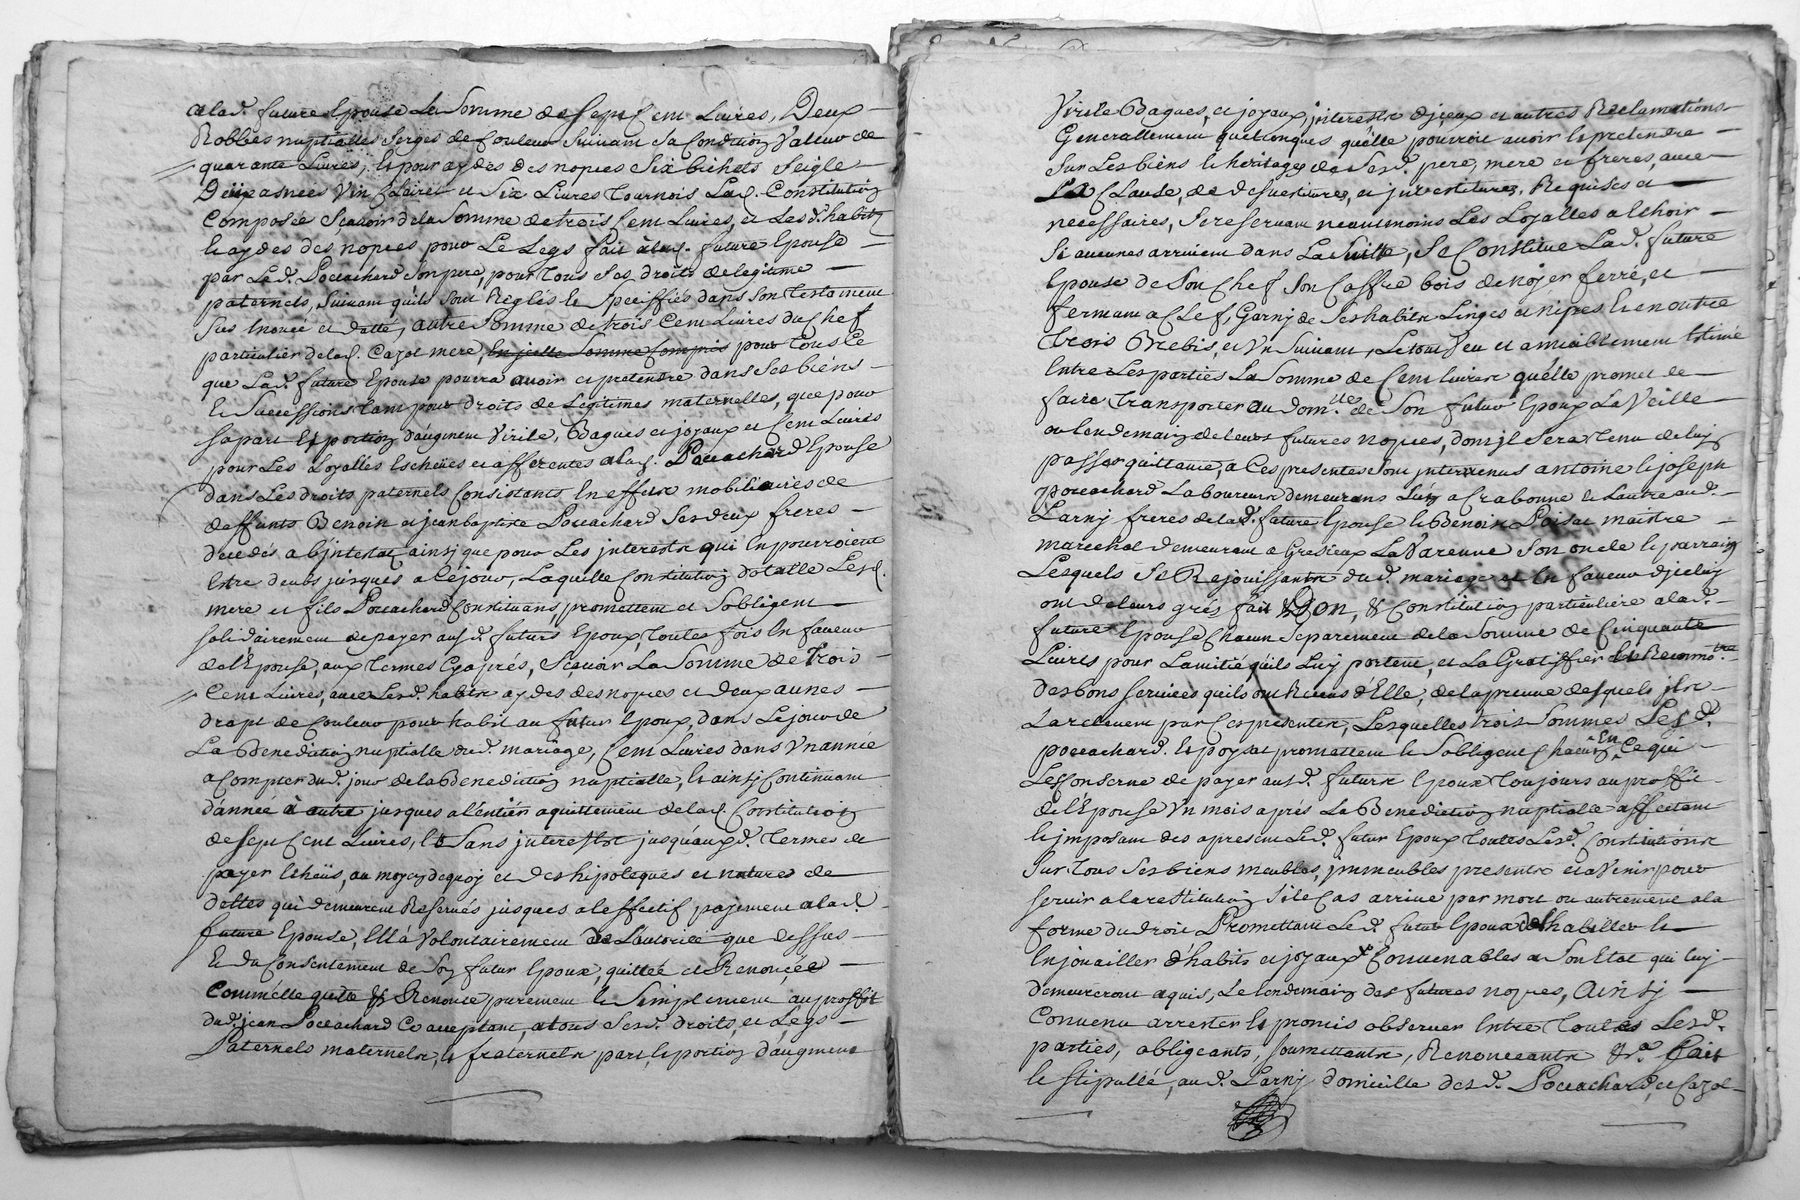 alad. future Epouse La Somme de Sept Cent Livres, Deux
Robbes nuptialles Serges de Couleur Suivant Sa Condition Valeur de
quarante Livres, Et pour aydes des nopces Six bichets Seigle
Deux asnées Vin Clairet et Six Livres Tournois Lad. Constitution
Composée Scavoir dela Somme de trois Cent Livres, et Lesd. habits
Et aydes des nopces pour Le Legs fait alad. future Epouse
par Led. Poccachard Son pere, pour Tous Ses droits de legitime
paternels, Suivant quils Sont Reglés Et Speciffiés dans Son Testament
Sus Enoncé et datté, autre Somme de trois Cent Livres du Chef
particulier delad. Cazot mere, En jcelle Somme Compris pour Tous Ce
que Lad. future Epouse pourra avoir et pretendre dans Ses biens
Et Successions tant pour droits de Legitimes maternelles, que pour
Sa part Et portion daugment Virile, Bagues et joyaux et Cent Livres
pour Les Loyalles Escheües et afferentes alad. Poccachard Epouse
dans Les droits paternels Consistants En effets mobiliaires de
deffunts Benoin et jean baptiste Poccachard Ses deux freres
decedés ab intestat ainsi que pour Les interests qui En pourroient
Estre deubs jusques a Ce jour, Laquelle Constitution dotalle Lesd.
mere et fils Poccachard Constituans, promettent et Sobligent
solidairement de payer ausd. futurs Epoux, Toutes fois En faveur
de l'Epouse, aux Termes Cy aprés, Scavoir La Somme de Trois
Cent Livres, avec Lesd. habits aydes des nopces et deux aunes
drapt de Couleur pour habit au futur Epoux, dans Le jour de
La Benediction nuptialle dud. mariage, Cent Livres dans Un année
a Compter dud. jour de la Benediction nuptialle, Et ainsi Continuant
d'année à autre jusques a l'entier aquittement delad. Constitution
de Sept Cent Livres, Et Sans interests jusqu'auxd. Termes de
payer Echeüs, au moyen de quoy et des hipoteques et natures de
dettes qui demeurent Reservés jusques a l'effectif payement alad.
future Epouse, Ell'a Volontairement de L'autorité que dessus
Et du Consentement de Son futur Epoux, quittée et Renoncée
Comm'elle quitte & Renonce purement Et Simplement, au proffit
dud. jean Poccachard Co acceptant, atous Sesd. droits, et Legs
Paternels maternels, Et fraternels part, Et portion d'augment
Virile Bagues, et joyaux, interests d'jceux et autres Reclamations
Generallement quelconques qu'elle pourroit avoir Et pretendre
Sur Les biens Et heritages de Sesd. pere, mere et freres, avec
La Clause, de desvestitures, et jnvestitures, Requises et
necessaires, Se reservant neantmoins Les Loyalles a Echoir
Si aucunes arrivent dans La Suitte, Se Constitue Lad. future
Epouse de Son Chef Son Coffre bois de noyer ferré, et
fermant a Clef, Garny de Ses habits Linges et nipes Et en outre
Trois Brebis, et Un Suivant, Le tout Veu et amiablement Estimé
Entre Les parties La Somme de Cent Livres qu'elle promet de
faire Transporter au dom.lle de Son futur Epoux La Veille
ou Lendemain de leurs futures nopces, dont jl Sera Tenu de luy
passer quittance, a Ces presentes Sont jntervenus antoine Et joseph
Poccachard Laboureurs demeurans L'un a Crabonne et Lautre aud.
Larny freres delad. future Epouse Et Benoin Poisat maistre
marechal demeurant a Gresieux La Varenne Son oncle Et parrain
Lesquels Se Rejouissants dud. mariage et En faveur djceluy
ont de leurs grés fait Don, & Constitution particuliere alad.
future Epouse Chacun Separement dela Somme de Cinquante
Livres pour Lamitié quils Luy portent, et La Gratiffier
des bons services quils ont Receus d'Elle, de la preuve desquels jls
La relevent par Ces presentes, Lesquelles trois Sommes Lesd.
poccachard Et poysat promettent Et Sobligent Chacun En Ce qui
Les Conserne de payer ausd. futurs Epoux Toujours au proffit
de l'Epouse Un mois aprés La Benediction nuptiale affectant
Et jmposant des apresent Led. futur Epoux Toutes Lesd. Constitutions
Sur tous Ses biens meubles, jmmeubles presents et a Venir pour
servir a la restitution Si le Cas arrive par mort ou autrement a la
forme du droit Promettant Led. futur Epoux d'Eshabiller Et
Enjouailler d'habits et joyaux Convenables a Son Etat qui luy
demeureront aquis, Le lendemain des futures nopces, Ainsj
Convenu arrester Et promis observer Entre Toutes Lesd.
parties, obligeants, soumettants, Renonceants &.a fait
Et stipullé, aud. Larny domicille desd. Poccachard, et Cazot